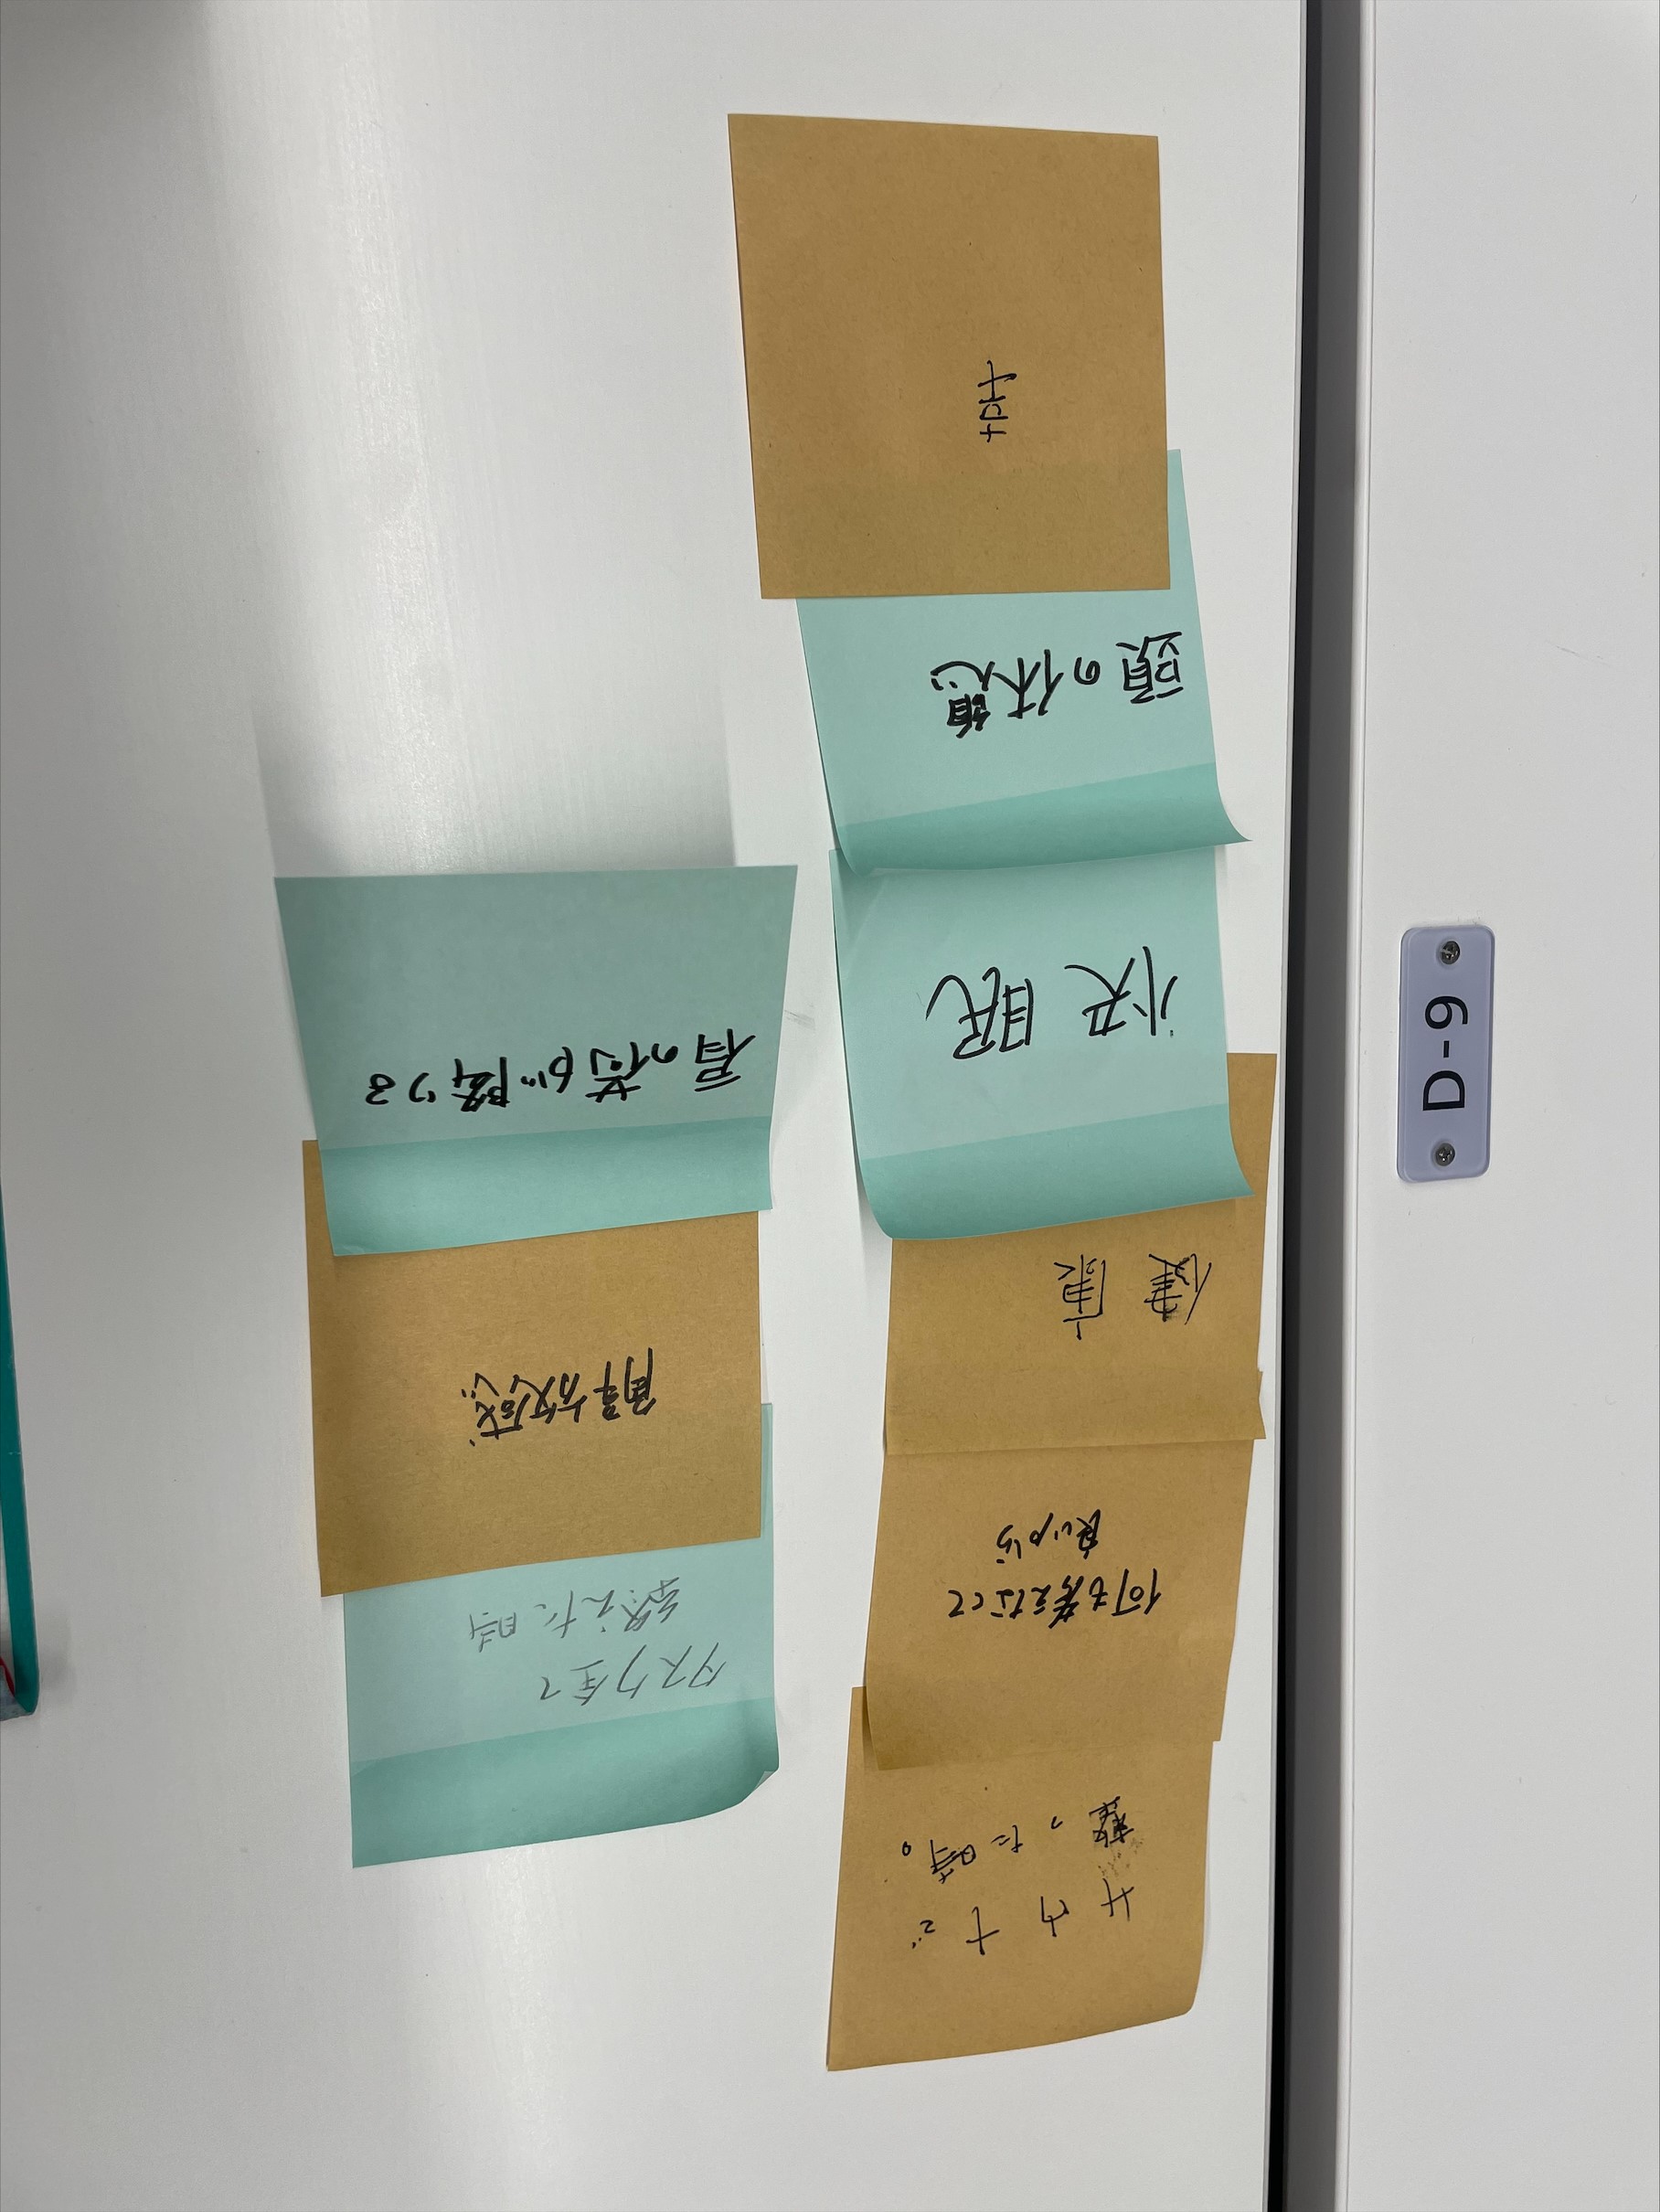 サウナで
整った時。
何も考えなくて
良いから
健康
快眠
頭の休憩
幸
タスク全て
終えた時
解放感
肩の荷が降りる
D-9